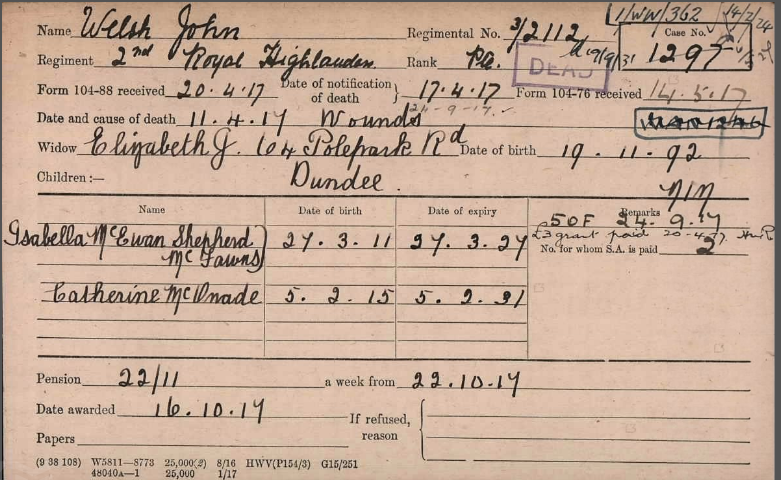 1/WW/362 14/2/24
Name Welsh John Regimental No. 3/2112 Case No.
Regiment 2nd Royal Highlanders. Rank Pte. DEAD 1297
Form 104-88 received 20.4.17 Date of notification of death } 17.4.17 Form 104-76 received 14.5.17
24-9-17.
Date and cause of death 11.4.17 Wounds
Widow Elizabeth J. 64 Polepark Rd Date of birth 19.11.92
Children:— Dundee.
Name Date of birth Date of expiry Remarks
SOF 24.9.17
Isabella McEwan Shepherd 27.3.11 27.3.27 £3 grant paid 20-4-17.
McFawns No. for whom S.A. is paid 2
Catherine McQuade 5.2.15 5.2.31
Pension 22/11 a week from 22.10.17
Date awarded 16.10.17 If refused,
Papers reason
(9 38 108) W5811—8773 25,000(2) 8/16 HWV(P154/3) G15/251
48040A—1 25,000 1/17